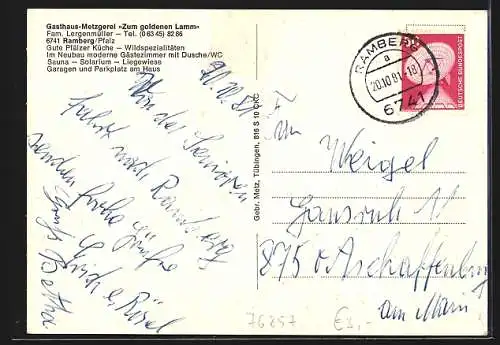 Gasthaus-Metzgerei «Zum goldenen Lamm»
Fam. Lergenmüller — Tel. (0 63 45) 82 86
6741 Ramberg/Pfalz
Gute Pfälzer Küche — Wildspezialitäten
Im Neubau moderne Gästezimmer mit Dusche/WC
Sauna — Solarium — Liegewiese
Garagen und Parkplatz am Haus
20.10.81
Von der Senioren
fahrt nach Ramberg
senden frohe Grüße
Betha
Gebr. Metz, Tübingen, 816 S 10 CKC
RAMBERG
a
20.10.81-18
6741
DEUTSCHE BUNDESPOST
Weigel
11
8750 Aschaffenburg
am Main
76257